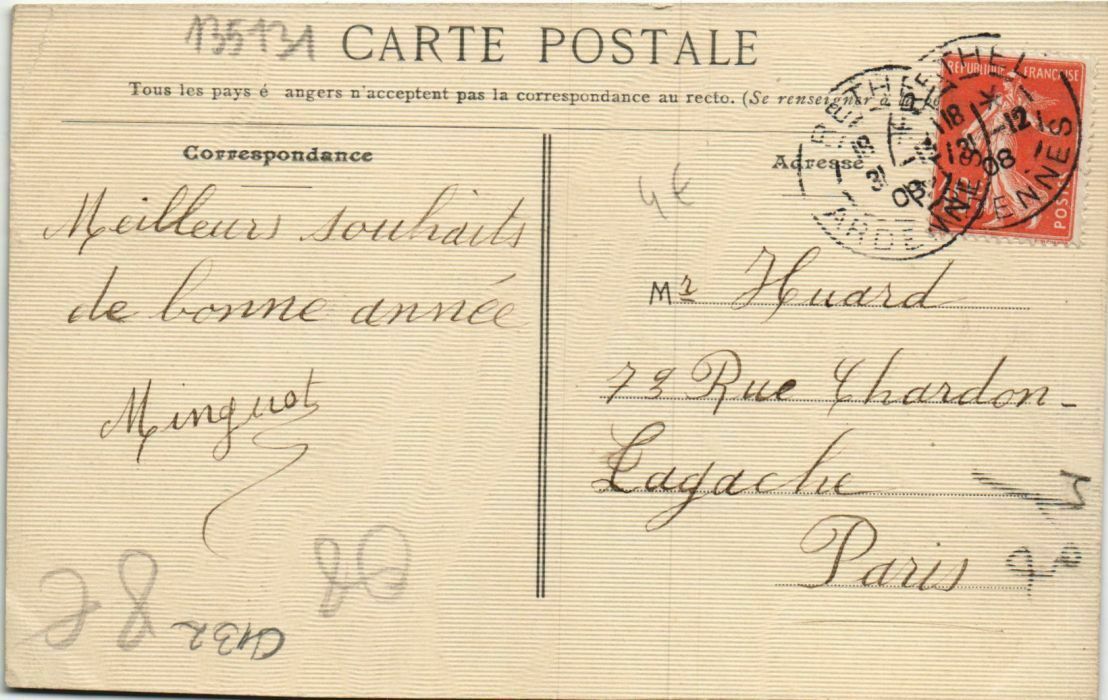 135131
CARTE POSTALE
Tous les pays é angers n'acceptent pas la correspondance au recto. (Se renseigner à la
Correspondance
Adresse
RETHEL
18
31 -12
08
ARDENNES
RETHEL
18
31 -12
08
ARDENNES
RÉPUBLIQUE FRANÇAISE
POSTES
4€
Meilleurs souhaits
de bonne année
Minguot
Mr Huard
73 Rue Chardon-
Lagache
Paris